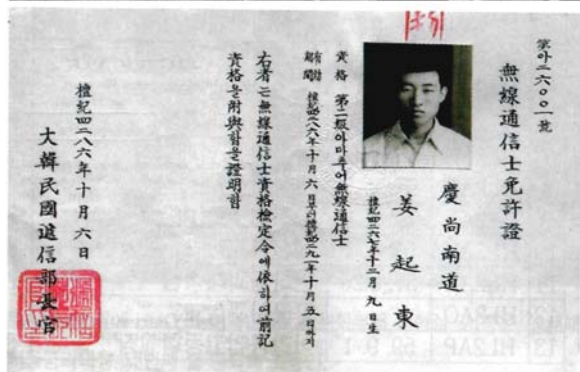 第아二六○○一號
無線通信士免許證
慶尚南道
姜起東
檀紀四二六七年十二月 九日生
資格 第二級아마추어無線通信士
有効期間 檀紀四二八六年十月 六日부터檀紀四二九一年十月 五日까지
右者는無線通信士資格檢定令에依하여前記
資格을附與함을證明함
檀紀四二八六年十月 六日
大韓民國遞信部長官